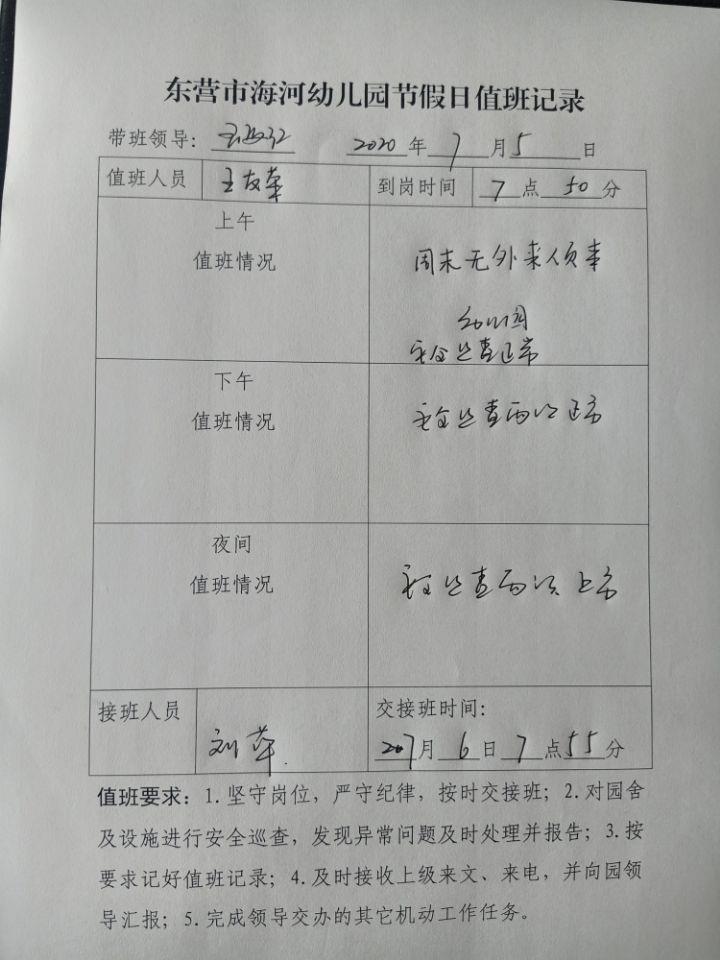 东营市海河幼儿园节假日值班记录
带班领导： 2020年7月5日
值班人员 王友华 到岗时间 7点50分
上午
值班情况
周末无外来人员来
幼儿园
安全巡查正常
下午
值班情况
安全巡查两次正常
夜间
值班情况
安全巡查两次正常
接班人员 刘萍 交接班时间：
7月6日7点55分
值班要求：1.坚守岗位，严守纪律，按时交接班；2.对园舍
及设施进行安全巡查，发现异常问题及时处理并报告；3.按
要求记好值班记录；4.及时接收上级来文、来电，并向园领
导汇报；5.完成领导交办的其它机动工作任务。